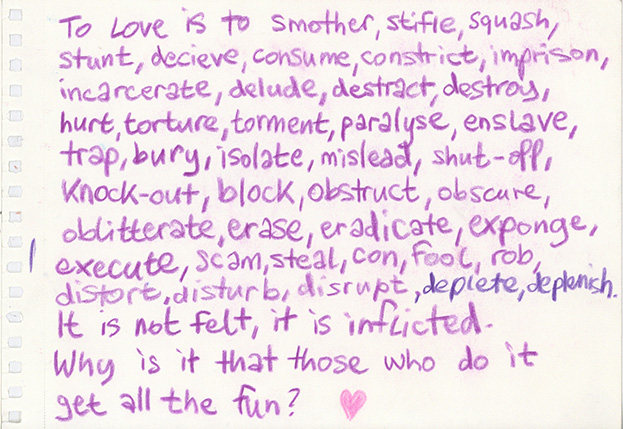 To Love is to smother, stifle, squash,
stunt, decieve, consume, constrict, imprison,
incarcerate, delude, destract, destroy,
hurt, torture, torment, paralyse, enslave,
trap, bury, isolate, mislead, shut-off,
Knock-out, block, obstruct, obscure,
oblitterate, erase, eradicate, exponge,
execute, scam, steal, con, fool, rob,
distort, disturb, disrupt, deplete, deplenish.
It is not felt, it is inflicted.
Why is it that those who do it
get all the fun?